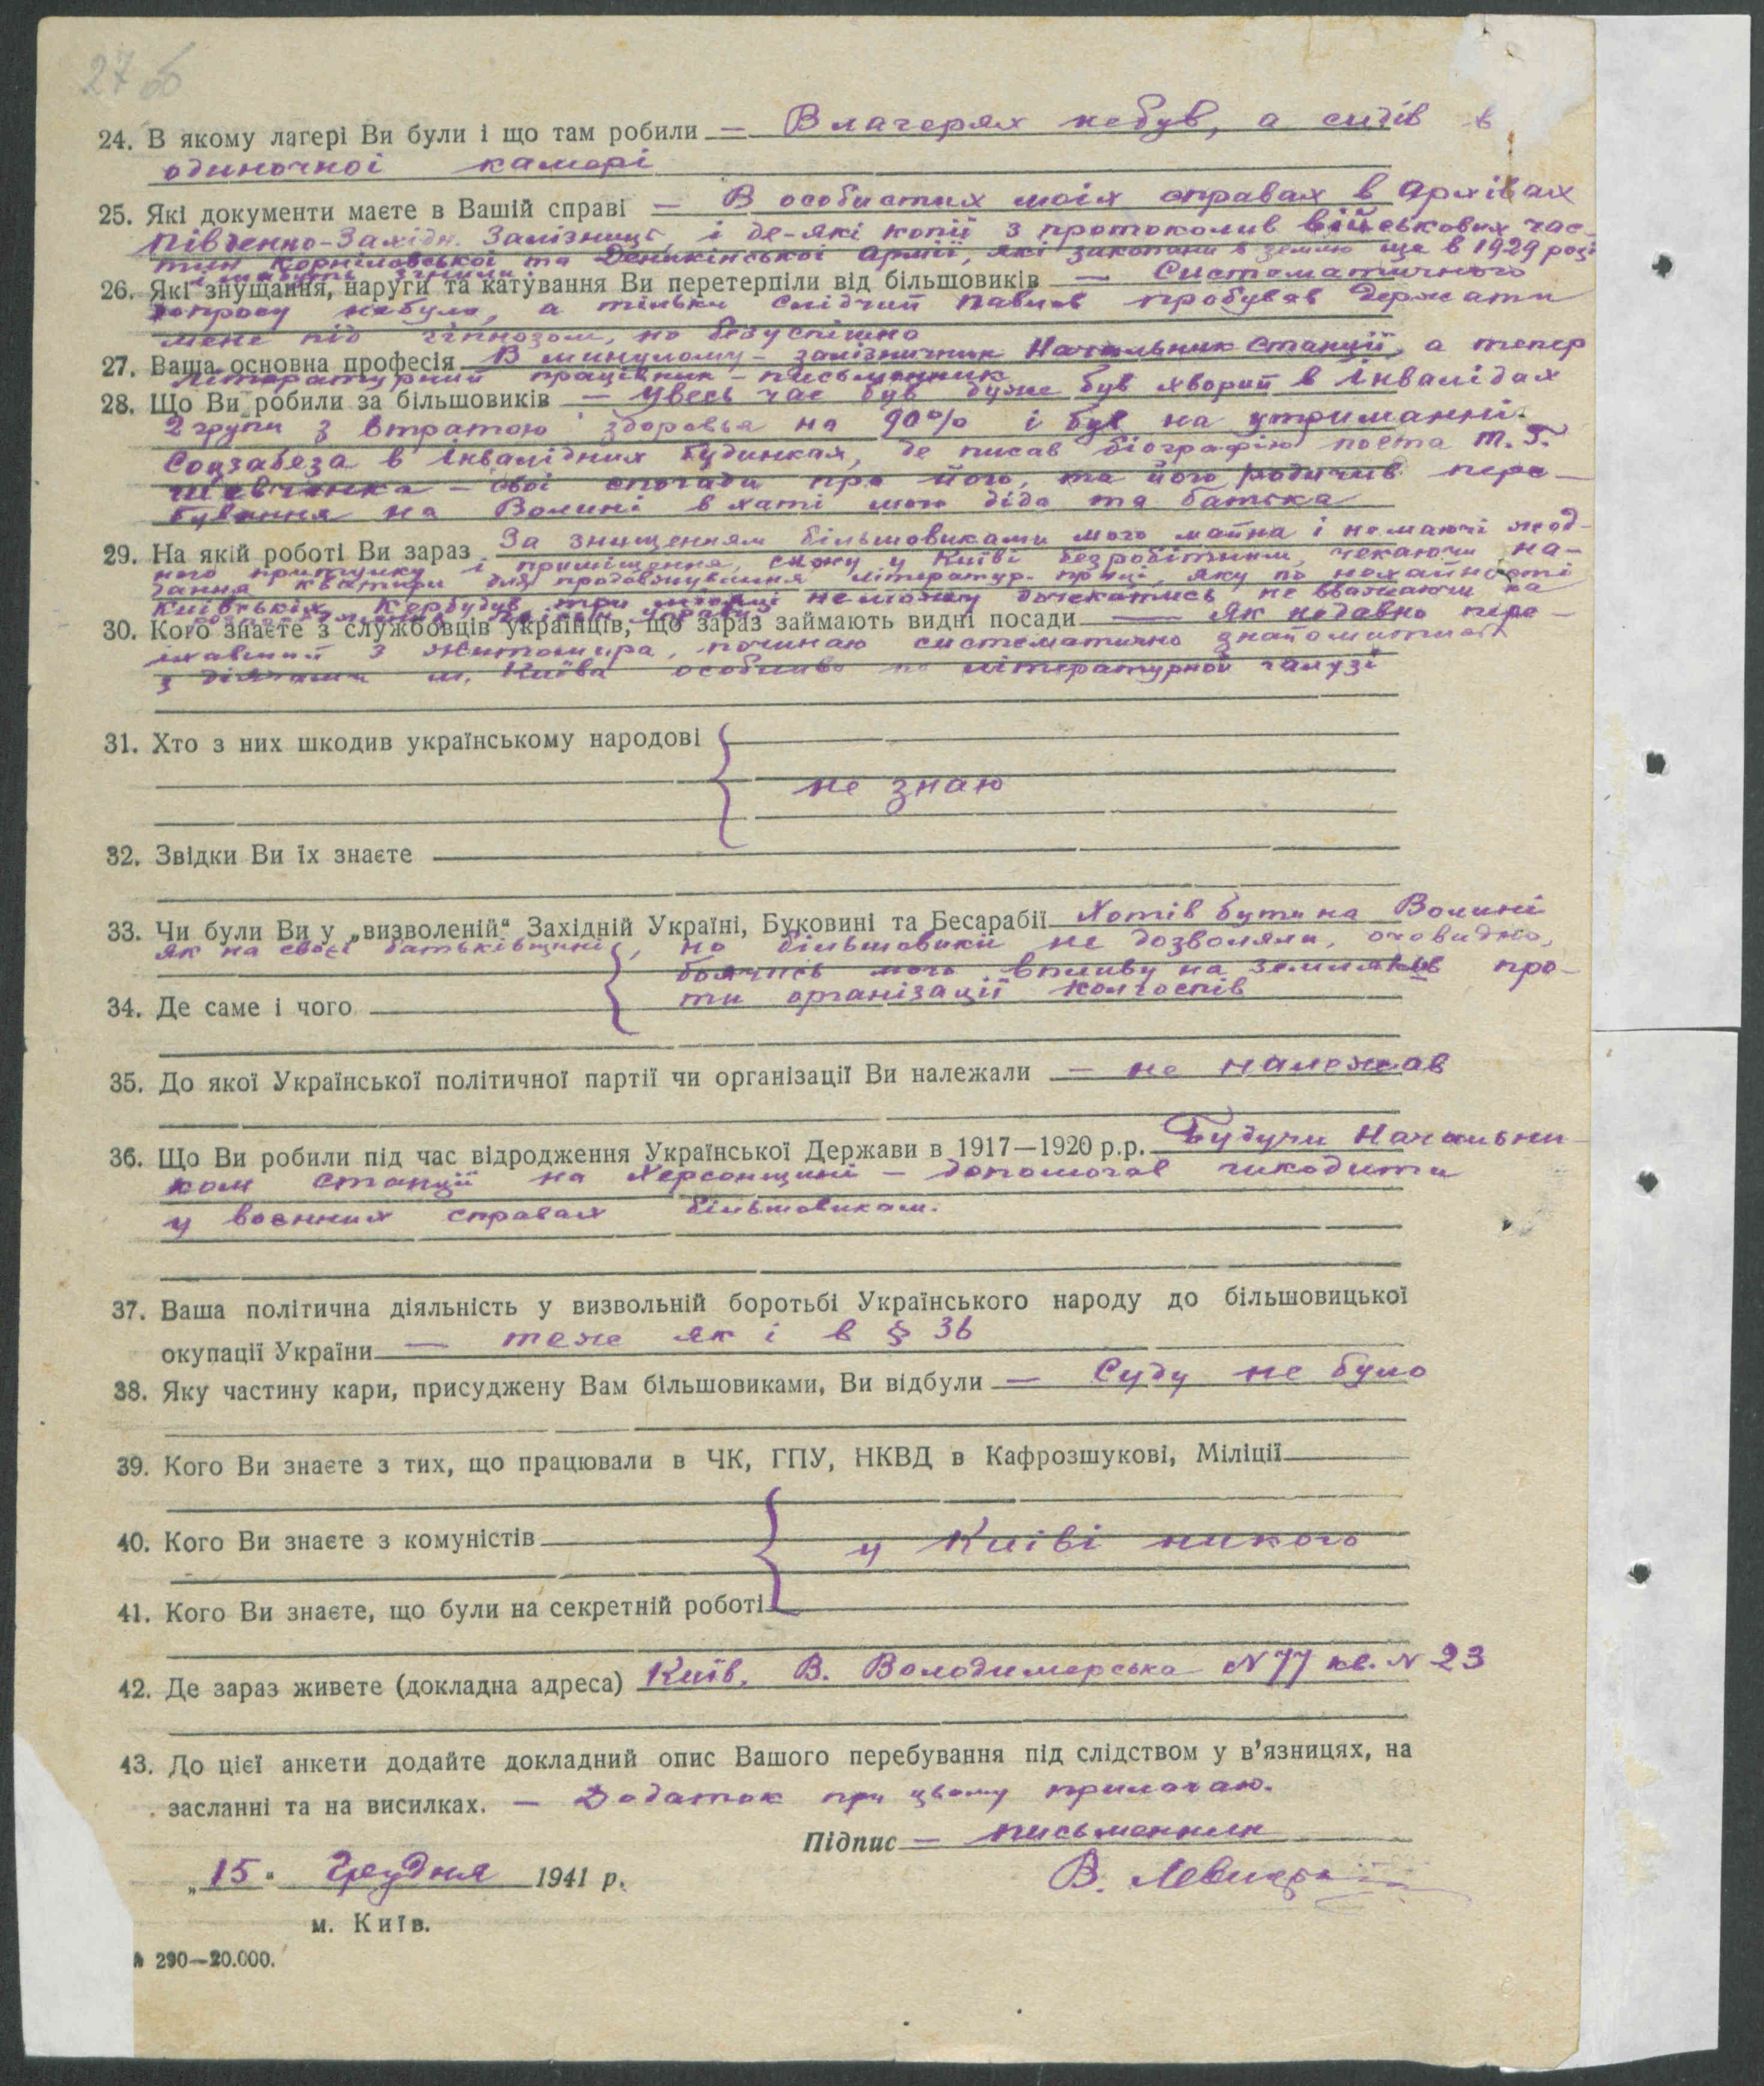 27 об
24. В якому лагері Ви були і що там робили — В лагерях небув, а сидів в
одиночноі камері
25. Які документи маєте в Вашій справі — В особистих моіх справах в Архівах
Південно-Західн. Залізниці, і де-які копіі з протоколив військових час-
тин Корніловськоі та Деникінськоі Арміі, які закопани в землю ще в 1929 році
26. Які знущання, наруги та катування Ви перетерпіли від більшовиків — Систематичного
допросу небуло, а тільки слідчий Павлов пробував держати
мене під гіпнозом, но безуспішно
27. Ваша основна професія В минулому - залізничник Начальник станціі, а тепер
літературний працівник - письменник
28. Що Ви робили за більшовиків — Увесь час був дуже був хворий в інвалідах
2 групи з втратою здоровья на 90% і був на утриманні
Соцзабеза в інвалідних будинках, де писав біографію поета Т. Г.
Шевченка - своі спогади про його, та його родичив пере-
бування на Волині в хаті мого діда та батька
29. На якій роботі Ви зараз За знищенням більшовиками мого майна і немаючі жод-
ного притулку і приміщення, сижу у Київі безробітним, чекаючи на-
дання квартири для продовжування літератур. праці, яку по нехайности
київських Кербудив три місяці неможу дочекатись не вважаючи на
30. Кого знаєте з службовців українців, що зараз займають видні посади — Як недавно пере-
іхавший з Житомира, починаю систематично знайомитись
з діячами м. Київа особливо по літературной галузі
31. Хто з них шкодив українському народові
не знаю
32. Звідки Ви їх знаєте
33. Чи були Ви у „визволеній“ Західній Україні, Буковині та Бесарабії Хотів бути на Волині
як на своєі батьківщині, но більшовики не дозволяли, очовидно,
боячись мого впливу на земляків про-
ти організаціі колгоспів
34. Де саме і чого
35. До якої Української політичної партії чи організації Ви належали — не належав
36. Що Ви робили під час відродження Української Держави в 1917—1920 р.р. Будучи Начальни-
ком станціі на Херсонщині - допомогав шкодити
у воєнних справах більшовикам.
37. Ваша політична діяльність у визвольній боротьбі Українського народу до більшовицької
окупації України — теже як і в § 36
38. Яку частину кари, присуджену Вам більшовиками, Ви відбули — Суду не було
39. Кого Ви знаєте з тих, що працювали в ЧК, ГПУ, НКВД в Кафрозшукові, Міліції
40. Кого Ви знаєте з комуністів
у Київі никого
41. Кого Ви знаєте, що були на секретній роботі
42. Де зараз живете (докладна адреса) Київ, В. Володимерська N 77 кв. N 23
43. До цієї анкети додайте докладний опис Вашого перебування під слідством у в’язницях, на
засланні та на висилках. — Додаток при цьому прилагаю.
Підпис — письменник
„15“ Грудня 1941 р.
м. Київ.
290—20.000.